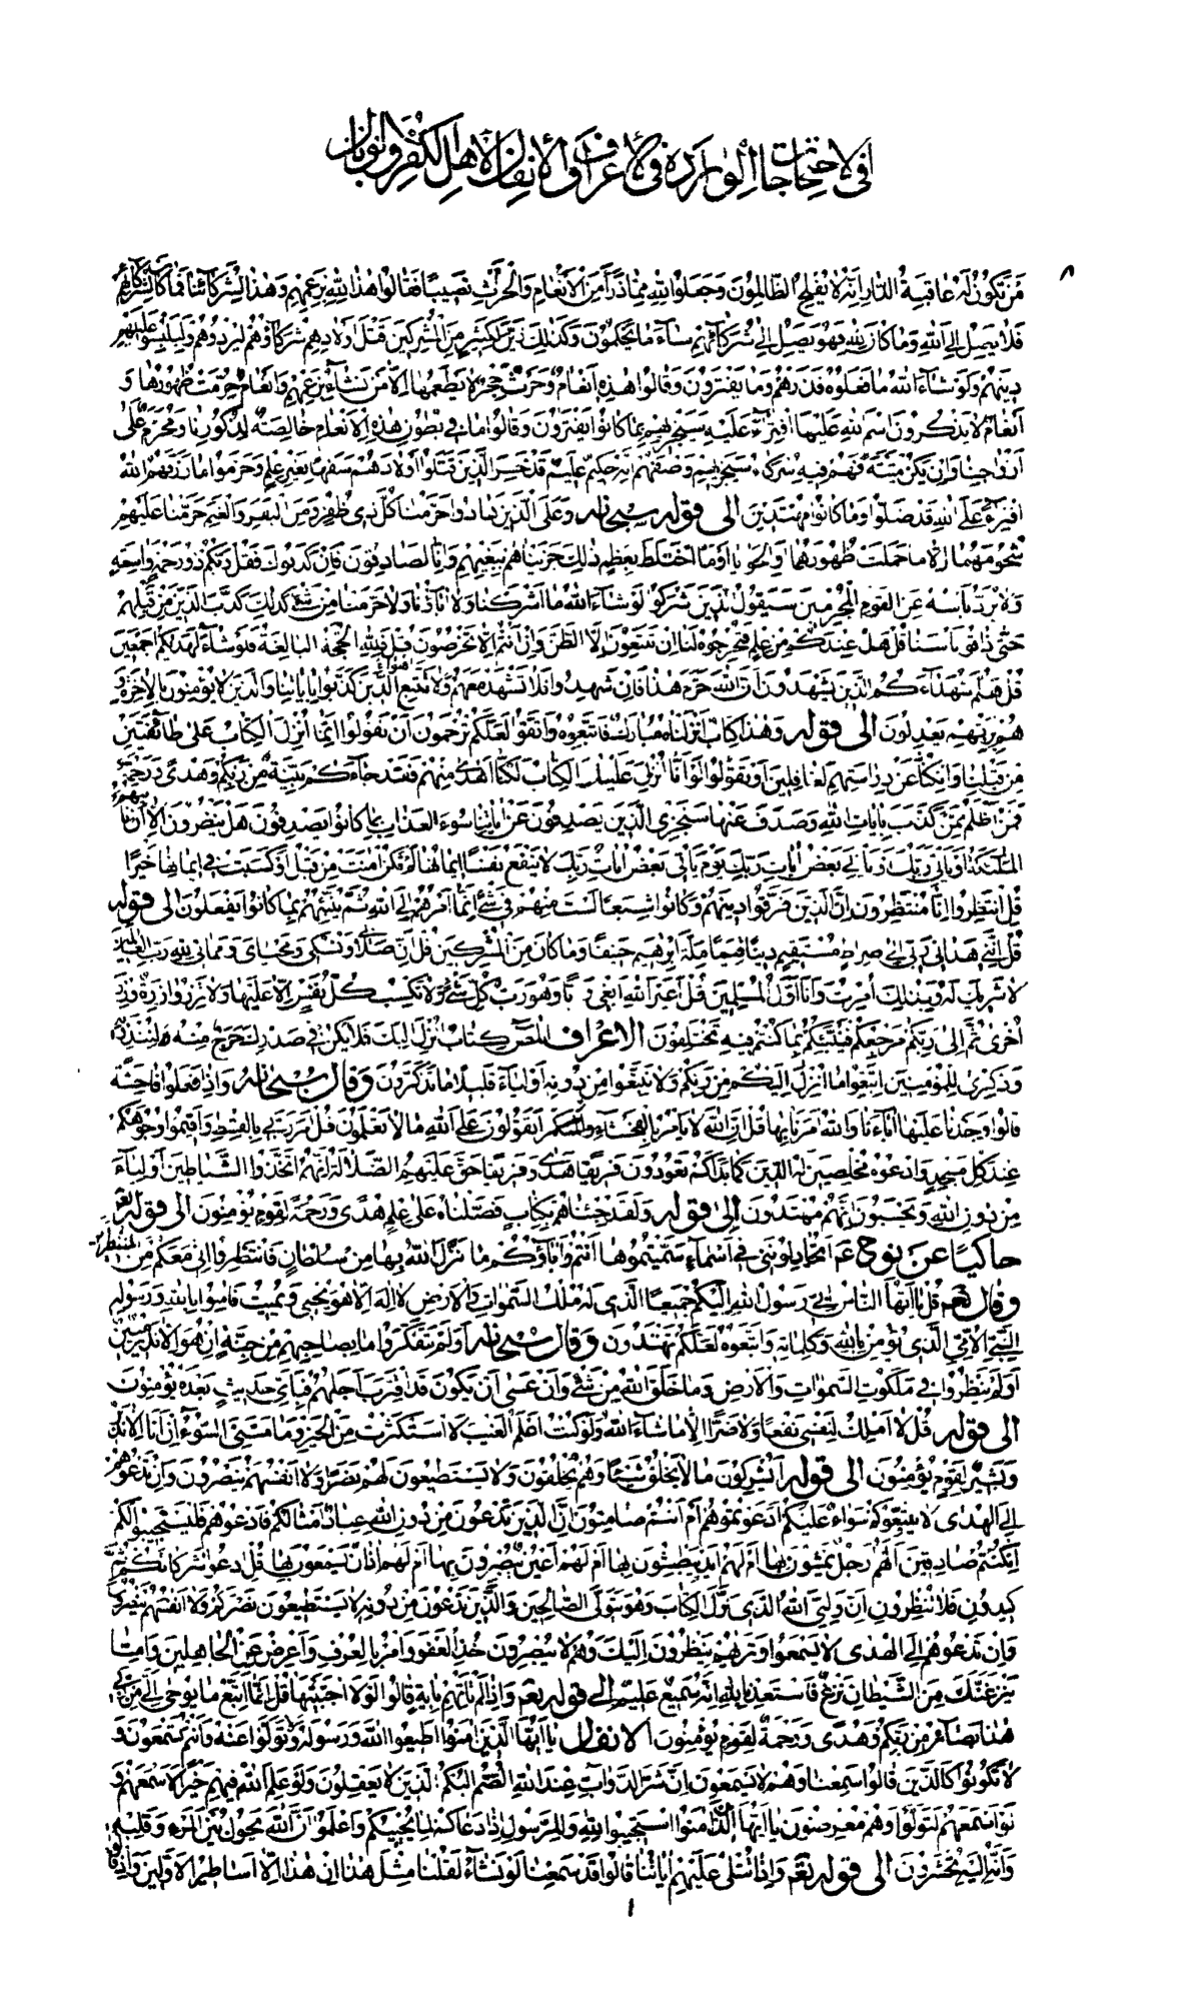 فى الاحتجاجات الواردة فى الاعراف والانفال لاهل الكفر والتوبة
٨
مَن تكون له عاقبة الدار انه لا يفلح الظالمون وجعلوا لله مما ذرأ من الانعام والحرث نصيبا فقالوا هذا لله بزعمهم وهذا لشركائنا فما كان لشركائهم
فلا يصل الى الله وما كان لله فهو يصل الى شركائهم ساء ما يحكمون وكذلك زين لكثير من المشركين قتل اولادهم شركاؤهم ليردوهم وليلبسوا عليهم
دينهم ولو شاء الله ما فعلوه فذرهم وما يفترون وقالوا هذه انعام وحرث حجر لا يطعمها الا من نشاء بزعمهم وانعام حرمت ظهورها و
انعام لا يذكرون اسم الله عليها افتراء عليه سيجزيهم بما كانوا يفترون وقالوا ما فى بطون هذه الانعام خالصة لذكورنا ومحرم على
ازواجنا وان يكن ميتة فهم فيه شركاء سيجزيهم وصفهم انه حكيم عليم قد خسر الذين قتلوا اولادهم سفها بغير علم وحرموا ما رزقهم الله
افتراء على الله قد ضلوا وما كانوا مهتدين الى قوله سبحانه وعلى الذين هادوا حرمنا كل ذى ظفر ومن البقر والغنم حرمنا عليهم
شحومهما الا ما حملت ظهورهما او الحوايا او ما اختلط بعظم ذلك جزيناهم ببغيهم وانا لصادقون فان كذبوك فقل ربكم ذو رحمة واسعة
ولا يرد باسه عن القوم المجرمين سيقول الذين اشركوا لو شاء الله ما اشركنا ولا اباؤنا ولا حرمنا من شئ كذلك كذب الذين من قبلهم
حتى ذاقوا باسنا قل هل عندكم من علم فتخرجوه لنا ان تتبعون الا الظن وان انتم الا تخرصون قل فلله الحجة البالغة فلو شاء لهديكم اجمعين
قل هلم شهداءكم الذين يشهدون ان الله حرم هذا فان شهدوا فلا تشهد معهم ولا تتبع اهواء الذين كذبوا باياتنا والذين لا يؤمنون بالاخرة و
هم بربهم يعدلون الى قوله وهذا كتاب انزلناه مبارك فاتبعوه واتقوا لعلكم ترحمون ان تقولوا انما انزل الكتاب على طائفتين
من قبلنا وان كنا عن دراستهم لغافلين او تقولوا لو انا انزل علينا الكتاب لكنا اهدى منهم فقد جاءكم بينة من ربكم وهدى ورحمة
فمن اظلم ممن كذب بايات الله وصدف عنها سنجزى الذين يصدفون عن اياتنا سوء العذاب بما كانوا يصدفون هل ينظرون الا ان تاتيهم
الملئكة او ياتى ربك او ياتى بعض ايات ربك يوم ياتى بعض ايات ربك لا ينفع نفسا ايمانها لم تكن امنت من قبل او كسبت فى ايمانها خيرا
قل انتظروا انا منتظرون ان الذين فرقوا دينهم وكانوا شيعا لست منهم فى شئ انما امرهم الى الله ثم ينبئهم بما كانوا يفعلون الى قوله
قل اننى هدانى ربى الى صراط مستقيم دينا قيما ملة ابرهيم حنيفا وما كان من المشركين قل ان صلاتى ونسكى ومحياى ومماتى لله رب العالمين
لا شريك له وبذلك امرت وانا اول المسلمين قل اغير الله ابغى ربا وهو رب كل شئ ولا تكسب كل نفس الا عليها ولا تزر وازرة وزر
اخرى ثم الى ربكم مرجعكم فينبئكم بما كنتم فيه تختلفون الاعراف المص كتاب انزل اليك فلا يكن فى صدرك حرج منه لتنذر به
وذكرى للمؤمنين اتبعوا ما انزل اليكم من ربكم ولا تتبعوا من دونه اولياء قليلا ما تذكرون وقال سبحانه واذا فعلوا فاحشة
قالوا وجدنا عليها اباءنا والله امرنا بها قل ان الله لا يامر بالفحشاء اتقولون على الله ما لا تعلمون قل امر ربى بالقسط واقيموا وجوهكم
عند كل مسجد وادعوه مخلصين له الدين كما بداكم تعودون فريقا هدى وفريقا حق عليهم الضلالة انهم اتخذوا الشياطين اولياء
من دون الله ويحسبون انهم مهتدون الى قوله ولقد جئناهم بكتاب فصلناه على علم هدى ورحمة لقوم يؤمنون الى قوله تع
حاكيا عن نوح ع اتجادلوننى فى اسماء سميتموها انتم واباؤكم ما نزل الله بها من سلطان فانتظروا انى معكم من المنتظرين
وقال تعم قل يا ايها الناس انى رسول الله اليكم جميعا الذى له ملك السموات والارض لا اله الا هو يحيى ويميت فامنوا بالله ورسوله
النبى الامى الذى يؤمن بالله وكلماته واتبعوه لعلكم تهتدون وقال سبحانه اولم يتفكروا ما بصاحبهم من جنة ان هو الا نذير مبين
اولم ينظروا فى ملكوت السموات والارض وما خلق الله من شئ وان عسى ان يكون قد اقترب اجلهم فباى حديث بعده يؤمنون
الى قوله قل لا املك لنفسى نفعا ولا ضرا الا ما شاء الله ولو كنت اعلم الغيب لاستكثرت من الخير وما مسنى السوء ان انا الا نذير
وبشير لقوم يؤمنون الى قوله ايشركون ما لا يخلق شيئا وهم يخلقون ولا يستطيعون لهم نصرا ولا انفسهم ينصرون وان تدعوهم
الى الهدى لا يتبعوكم سواء عليكم ادعوتموهم ام انتم صامتون ان الذين تدعون من دون الله عباد امثالكم فادعوهم فليستجيبوا لكم
ان كنتم صادقين الهم ارجل يمشون بها ام لهم ايد يبطشون بها ام لهم اعين يبصرون بها ام لهم اذان يسمعون بها قل ادعوا شركاءكم ثم
كيدون فلا تنظرون ان وليى الله الذى نزل الكتاب وهو يتولى الصالحين والذين تدعون من دونه لا يستطيعون نصركم ولا انفسهم ينصرون
وان تدعوهم الى الهدى لا يسمعوا وتريهم ينظرون اليك وهم لا يبصرون خذ العفو وامر بالعرف واعرض عن الجاهلين واما
ينزغنك من الشيطان نزغ فاستعذ بالله انه سميع عليم الى قوله تعم واذا لم تاتهم باية قالوا لولا اجتبيتها قل انما اتبع ما يوحى الى من ربى
هذا بصائر من ربكم وهدى ورحمة لقوم يؤمنون الانفال يا ايها الذين امنوا اطيعوا الله ورسوله ولا تولوا عنه وانتم تسمعون و
لا تكونوا كالذين قالوا سمعنا وهم لا يسمعون ان شر الدواب عند الله الصم البكم الذين لا يعقلون ولو علم الله فيهم خيرا لاسمعهم و
لو اسمعهم لتولوا وهم معرضون يا ايها الذين امنوا استجيبوا لله وللرسول اذا دعاكم لما يحييكم واعلموا ان الله يحول بين المرء وقلبه
وانه اليه تحشرون الى قوله تعم واذا تتلى عليهم اياتنا قالوا قد سمعنا لو نشاء لقلنا مثل هذا ان هذا الا اساطير الاولين واذ قالوا
١